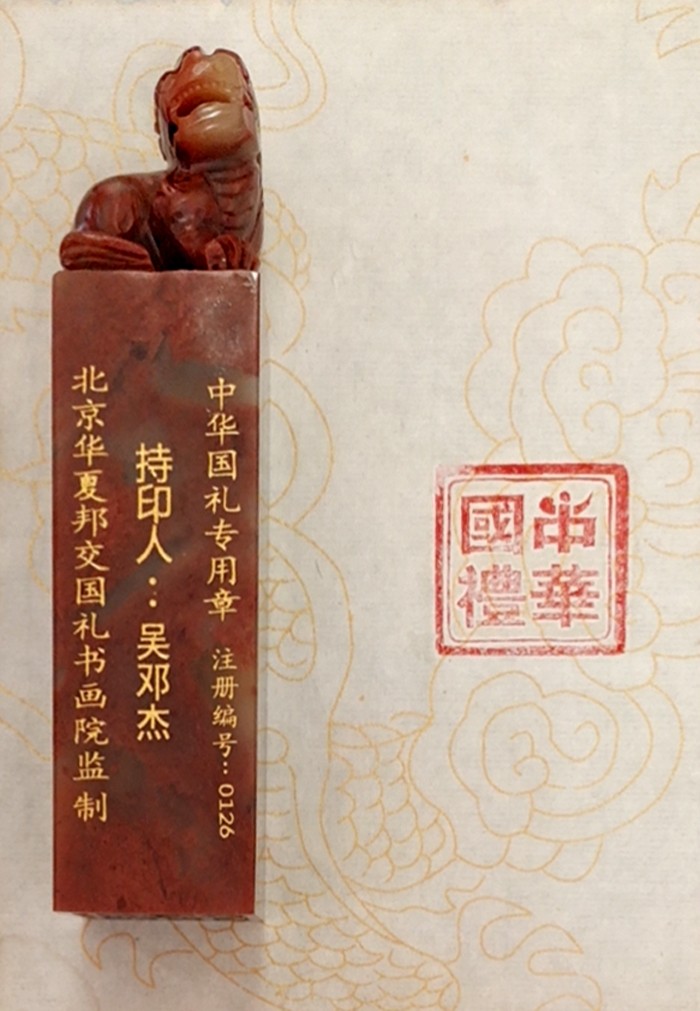 中华国礼专用章 注册编号：0126
持印人：吴邓杰
北京华夏邦交国礼书画院监制
中華
國禮